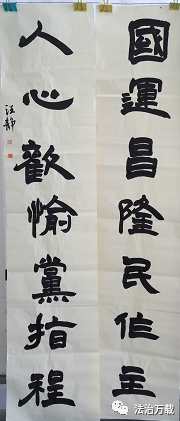 國運昌隆民作主
人心歡愉黨指程
汪靜
法治万载